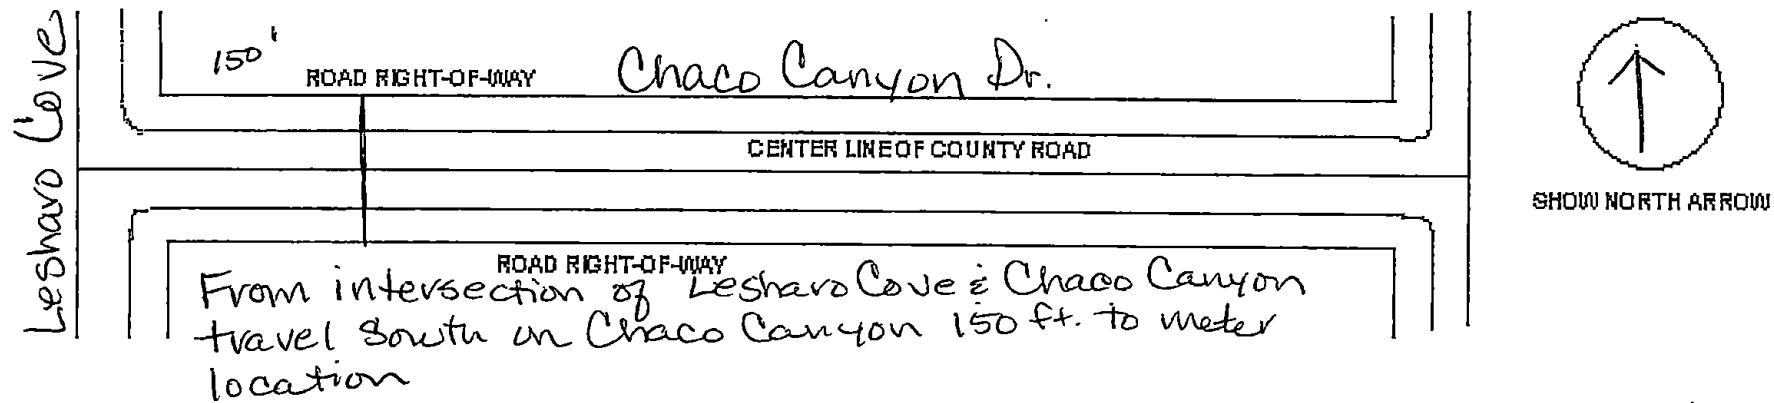 Lesharo Cove
150'
ROAD RIGHT-OF-WAY
Chaco Canyon Dr.
CENTER LINE OF COUNTY ROAD
SHOW NORTH ARROW
ROAD RIGHT-OF-WAY
From intersection of Lesharo Cove & Chaco Canyon
travel South on Chaco Canyon 150 ft. to meter
location